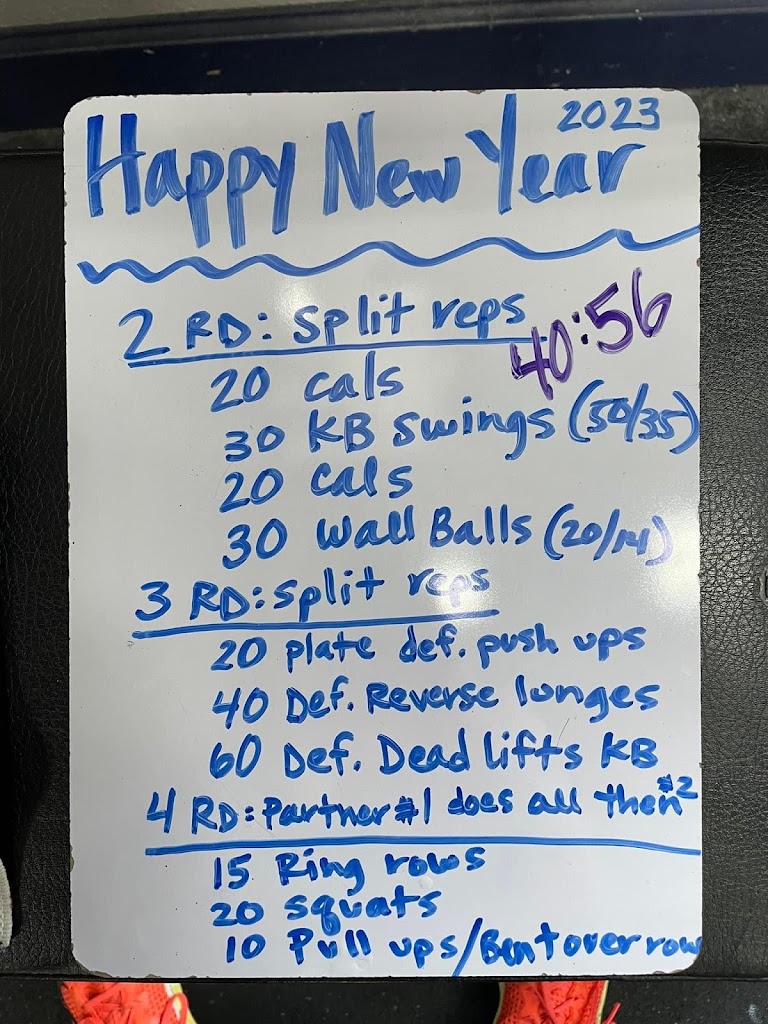 2023
Happy New Year
2 RD: Split reps
40:56
20 cals
30 KB swings (50/35)
20 cals
30 Wall Balls (20/14)
3 RD: split reps
20 plate def. push ups
40 Def. Reverse lunges
60 Def. Dead lifts KB
4 RD: Partner #1 does all then #2
15 Ring rows
20 squats
10 Pull ups/Bent over row